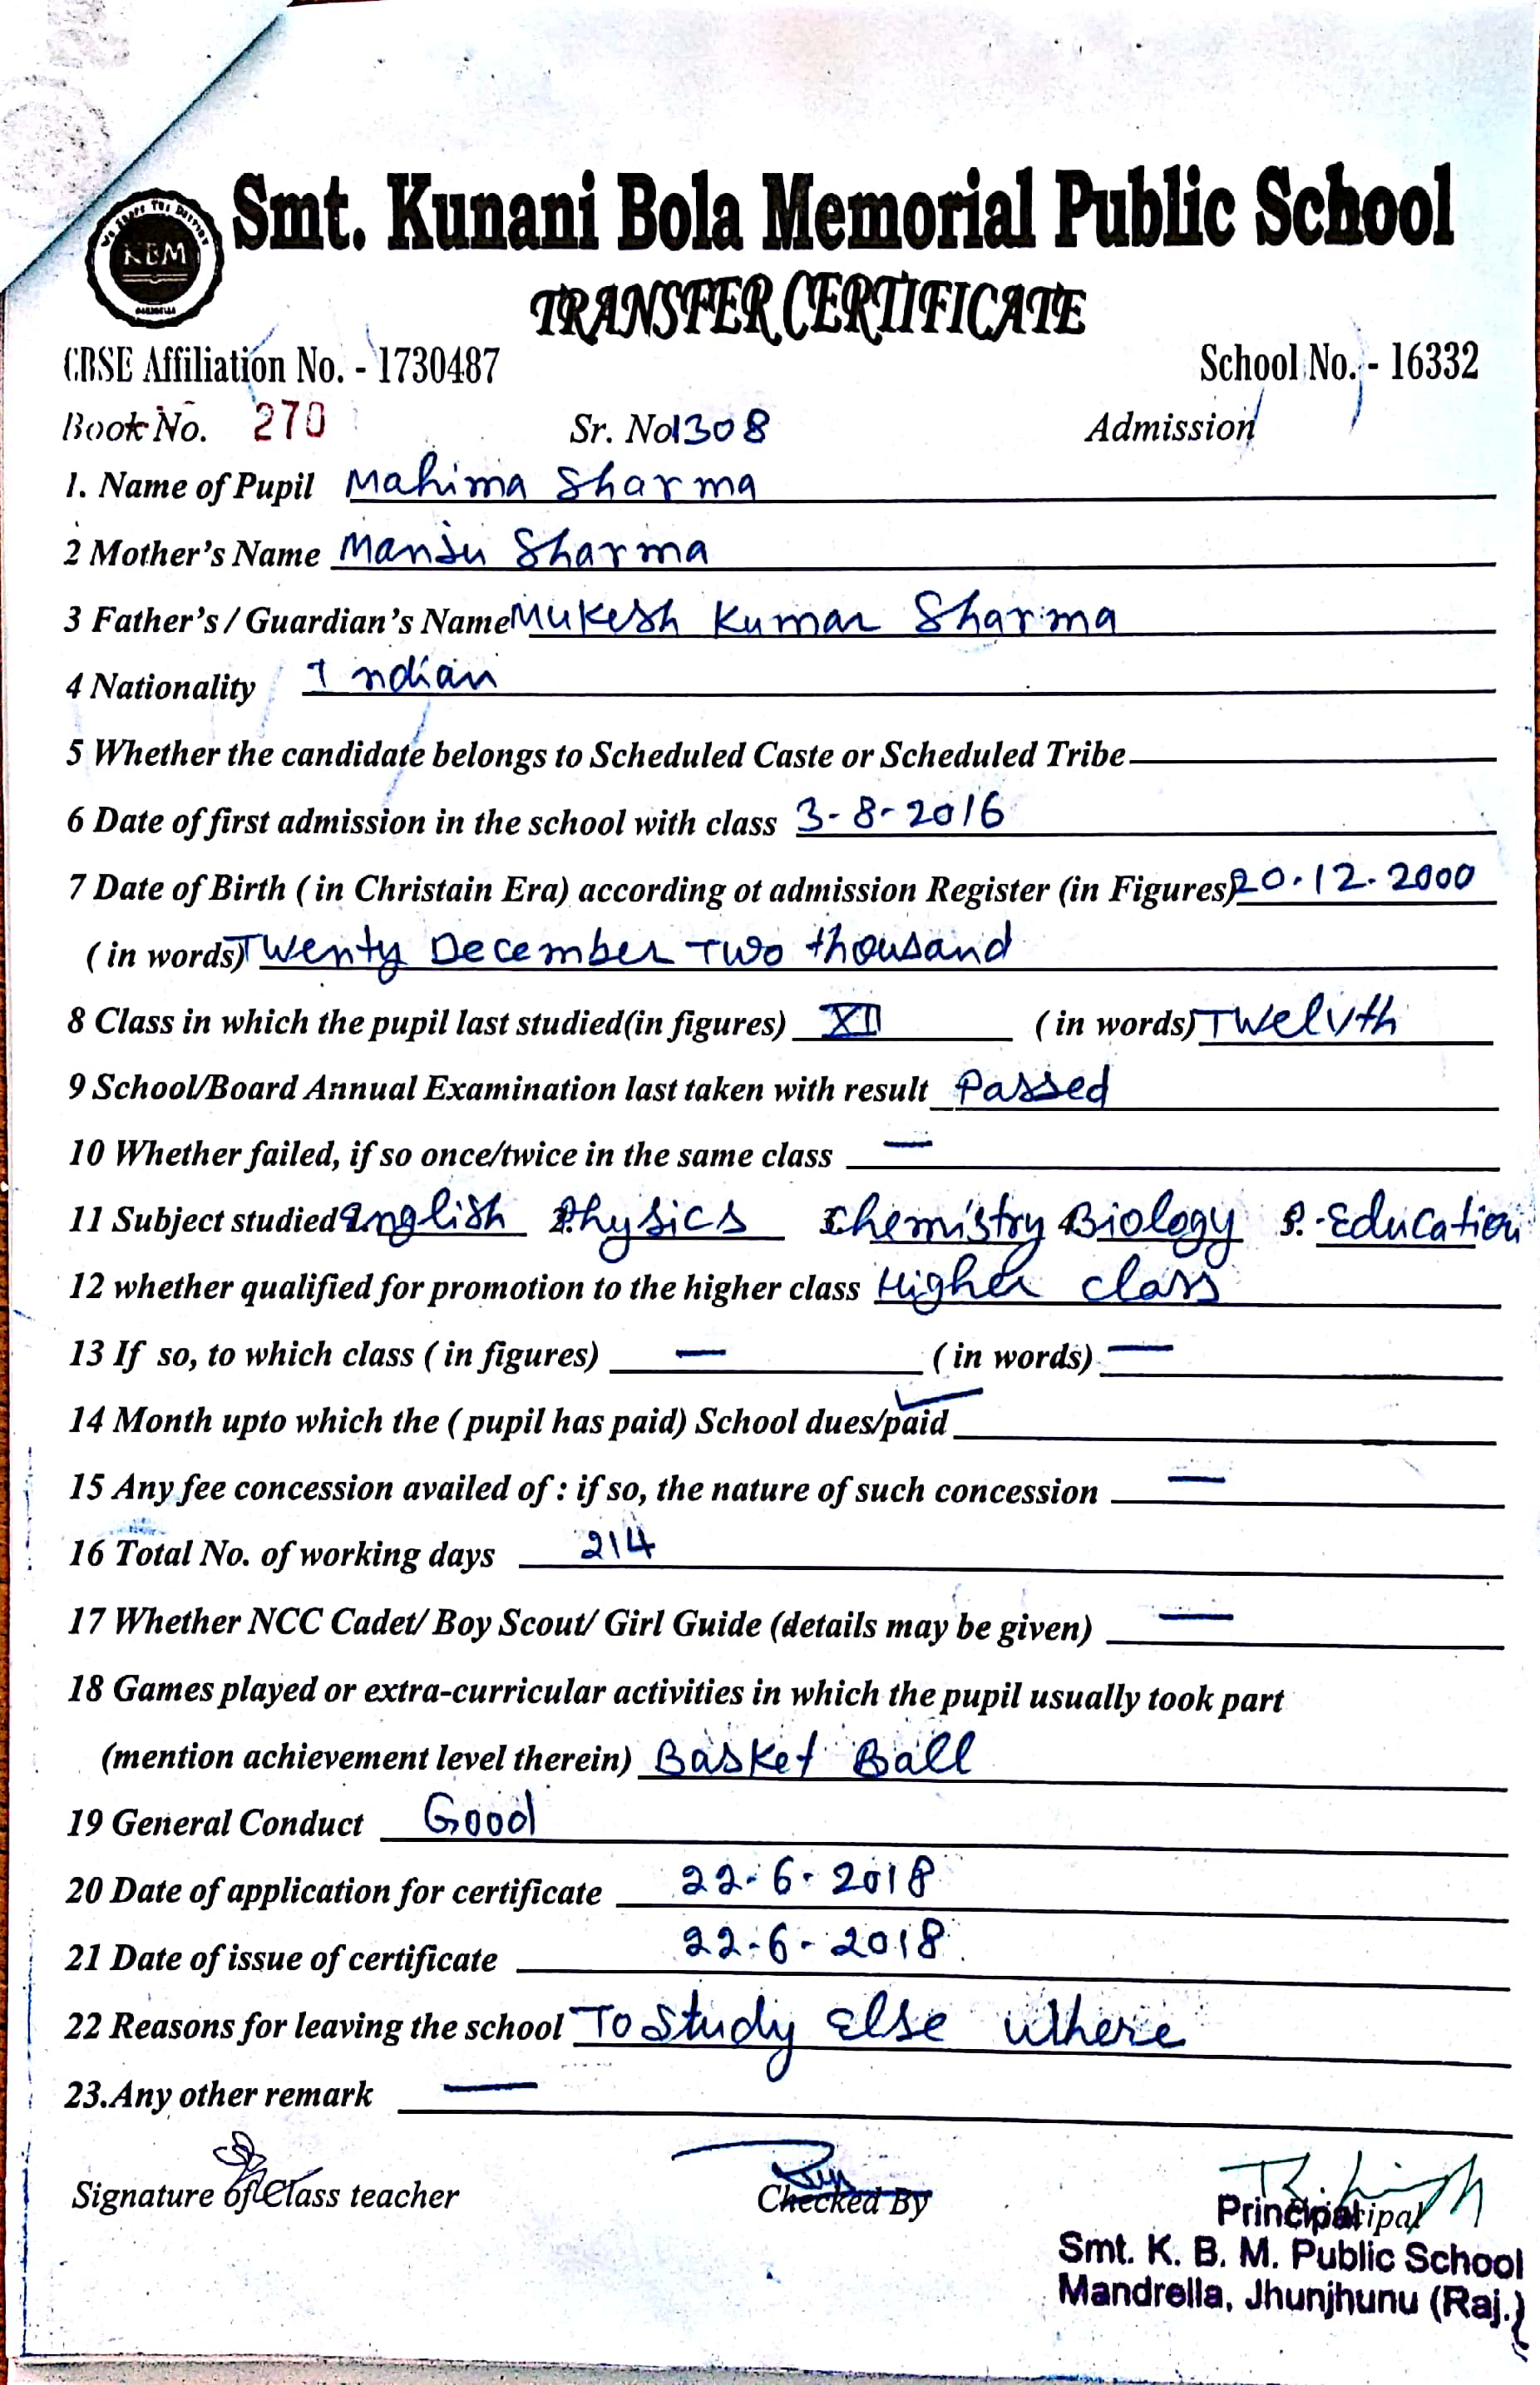 KBM
Smt. Kunani Bola Memorial Public School
TRANSFER CERTIFICATE
CBSE Affiliation No. - 1730487 School No. - 16332
Book No. 270 Sr. No 1308 Admission
1. Name of Pupil Mahima Sharma
2 Mother's Name Manju Sharma
3 Father's / Guardian's Name Mukesh Kumar Sharma
4 Nationality Indian
5 Whether the candidate belongs to Scheduled Caste or Scheduled Tribe
6 Date of first admission in the school with class 3-8-2016
7 Date of Birth ( in Christain Era) according ot admission Register (in Figures) 20.12.2000
( in words) Twenty December Two thousand
8 Class in which the pupil last studied(in figures) XII ( in words) Twelvth
9 School/Board Annual Examination last taken with result Passed
10 Whether failed, if so once/twice in the same class —
11 Subject studied 1. English 2. Physics 3. Chemistry 4. Biology 5. P. Education
12 whether qualified for promotion to the higher class Higher class
13 If so, to which class ( in figures) — ( in words) —
14 Month upto which the ( pupil has paid) School dues/paid
15 Any fee concession availed of : if so, the nature of such concession —
16 Total No. of working days 214
17 Whether NCC Cadet/ Boy Scout/ Girl Guide (details may be given) —
18 Games played or extra-curricular activities in which the pupil usually took part
(mention achievement level therein) Basket Ball
19 General Conduct Good
20 Date of application for certificate 22-6-2018
21 Date of issue of certificate 22-6-2018
22 Reasons for leaving the school To Study Else where
23.Any other remark —
Signature of Class teacher Checked By Principal
Principal
Smt. K. B. M. Public School
Mandrella, Jhunjhunu (Raj.)